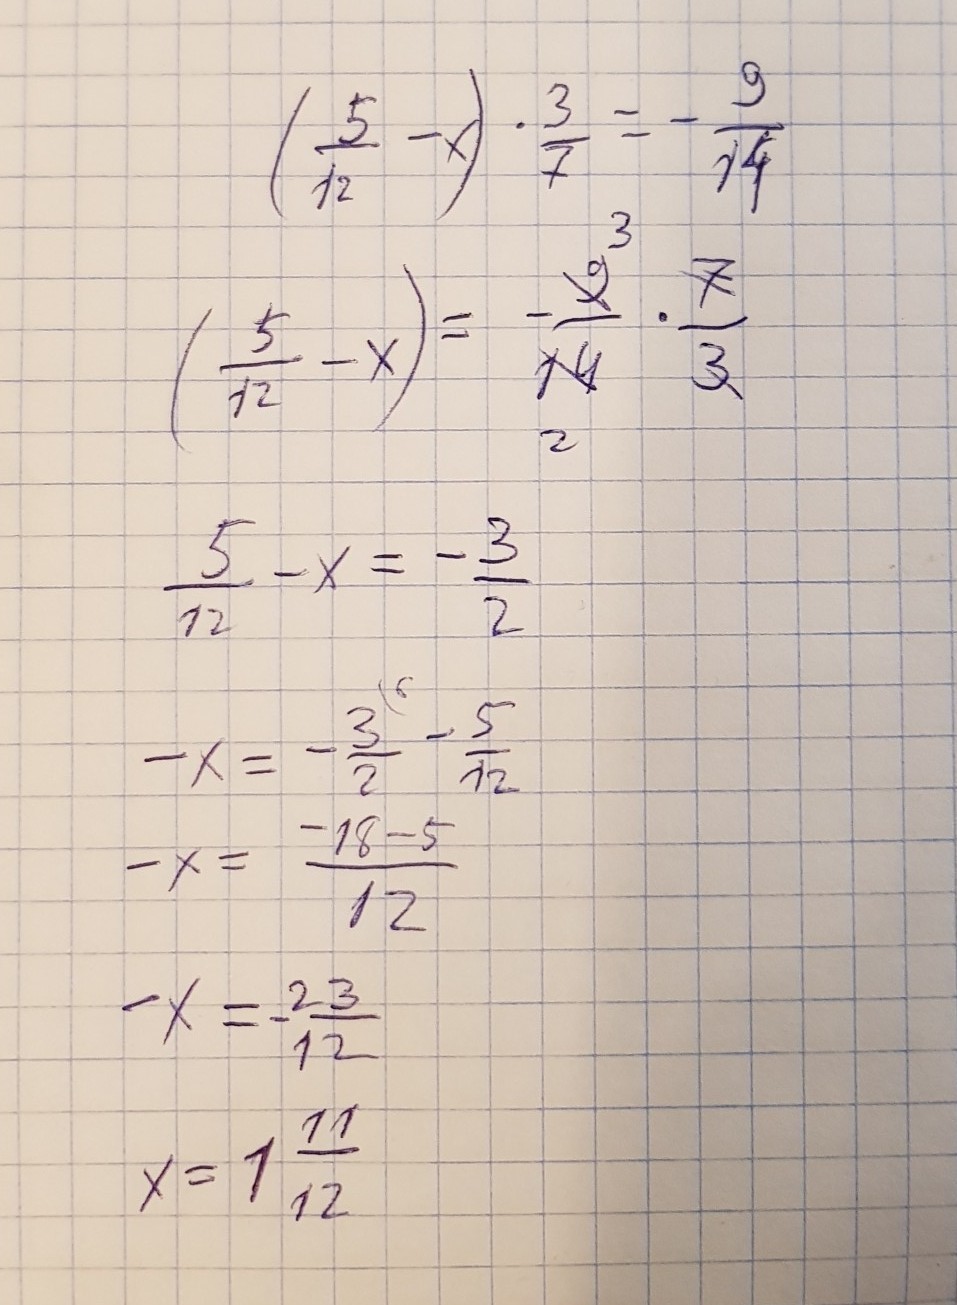 (5/12 - x) · 3/7 = - 9/14
(5/12 - x) = - 9/14 · 7/3 3 2
5/12 - x = - 3/2
-x = - 3/2 (6 - 5/12
-x = (-18-5)/12
-x = - 23/12
x = 1 11/12